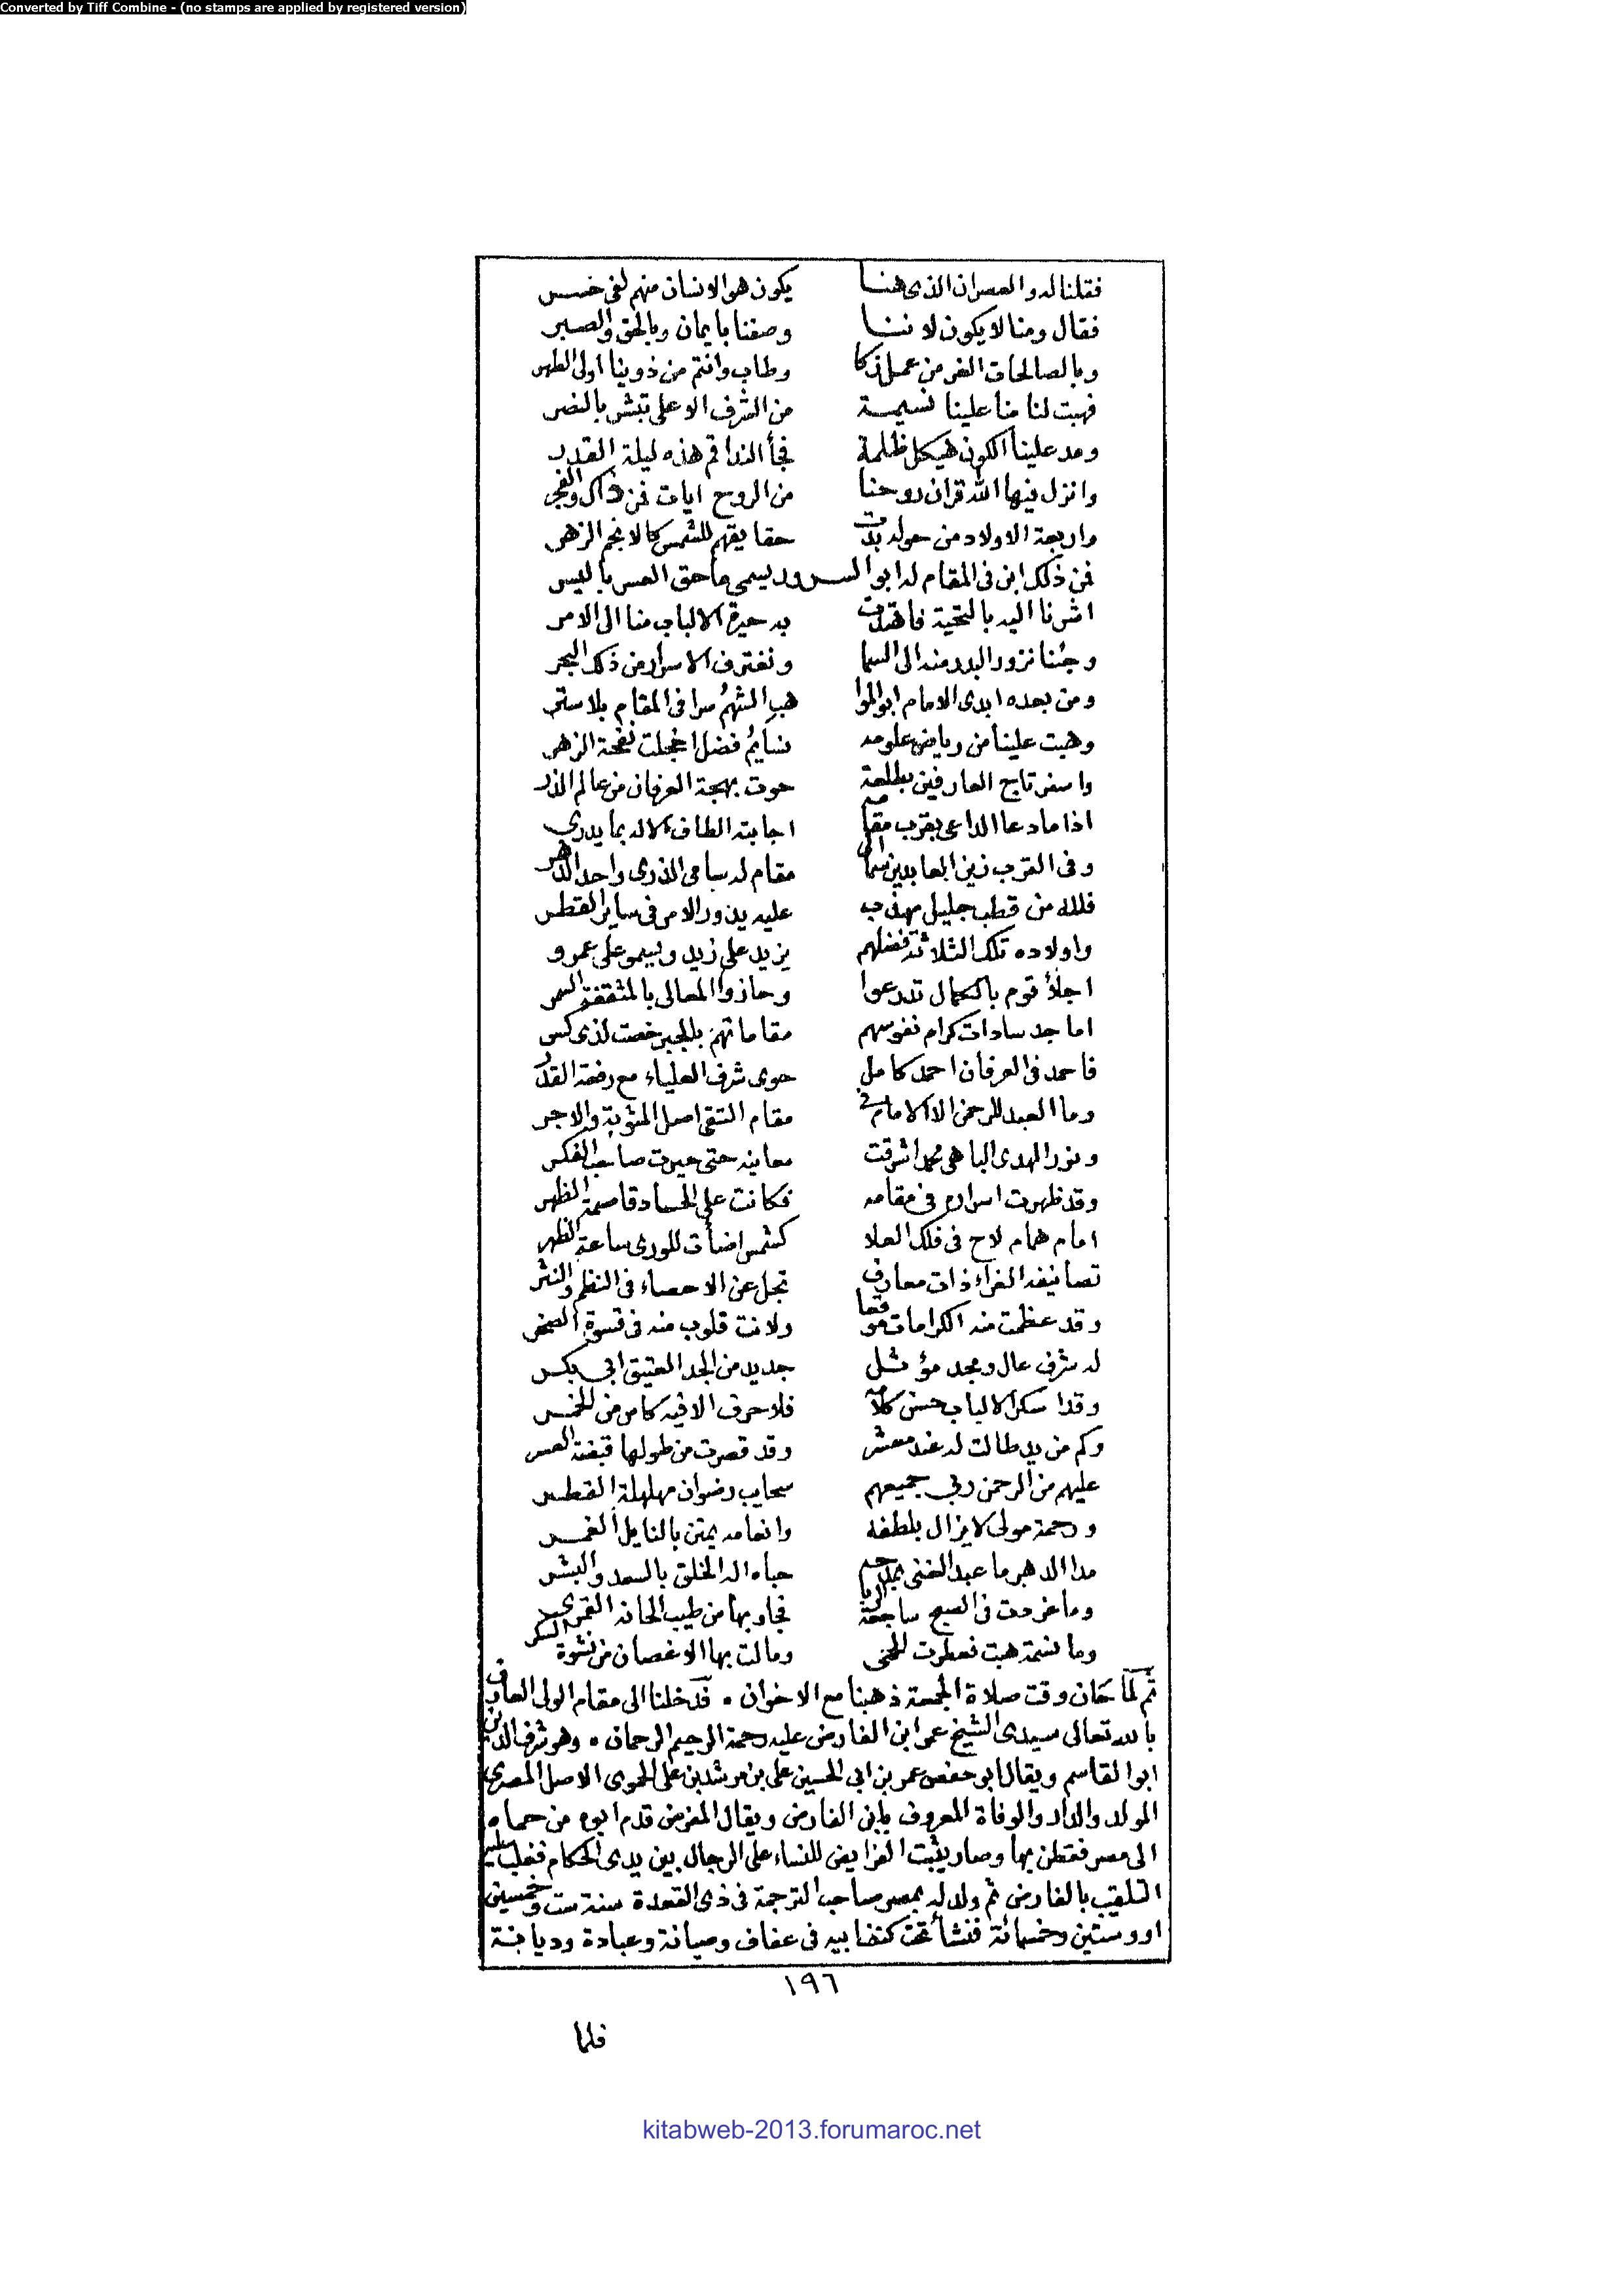 Converted by Tiff Combine - (no stamps are applied by registered version)
فقلنا له والعصران الذى هنا يكون هو الانسان منهم لفى خسر
فقال ومنا لا يكون لاننا وصفنا بايمان وبالحق والصبر
وبالصالحات الغر من عمل زكا وطاب وانتم من ذوينا اولى الطهر
فهبت لنا منا علينا نسيمة من الشرف الاعلى تبشر بالنصر
ومد علينا الكون هيكل ظلمة فجأ الندا قم هذه ليلة القدر
وانزل فيها الله قران روحنا من الروح ايات فمن ذاك والفجر
واربعة الاولاد من حوله بدت حقايقهم للشمس كالانجم الزهر
فمن ذلك ابن فى المقام له ابو السرور يسمى ماحق العسر باليسر
اشرنا اليه بالتحية فاهتدت به حيرة الالباب منا الى الامر
وجئنا نزور البدر منه الى السما ونغترف الاسرار من ذلك البحر
ومن بعده ابدى الامام ابو الموا هب الشهم سرا فى المقام بلا ستر
وهبت علينا من رياض علومه نسايم فضل اخجلت نفحة الزهر
واسفر تاج العارفين بطلعة حوت بهجة العرفان من عالم الذر
اذا ما دعا الداعى بقرب مقامه اجابته الطاف الاله بما يدرى
وفى القرب زين العابدين سما الى مقام له سامى الذرى واحد الدهر
فلله من قطب جليل مهذب عليه يدور الامر فى ساير القطر
واولاده تلك الثلاثة فضلهم يزيد على زيد ويسمو على عمرو
اجلأ قوم بالكمال تدرعوا وحازوا المعالى بالمثقفة السمر
اماجد سادات كرام نفوسهم مقاماتهم بالجبر خصت لذى كسر
فاحمد فى العرفان احمد كامل حوى شرف العلياء مع رفعة القدر
وما العبد للرحمن الا الامام فى مقام التقى اصل المثوبة والاجر
ونور الهدى الباهى محمد اشرقت معاينه حتى حيرت صاحب الفكر
وقد ظهرت اسراره فى مقامه فكانت على الحساد قاصمة الظهر
امام همام لاح فى فلك العلا كشمس اضأت للورى ساعة الظهر
تصانيفه الغراء ذات معارف تجل عن الاحصاء فى النظم والنثر
وقد عظمت منه الكرامات موقعا ولانت قلوب منه فى قسوة الصخر
له شرف عال ومجد مؤثل جديد من الجد العتيق ابى بكر
وقد اسكر الالباب حسن كلامه فلا حرف الا فيه كاس من الخمر
وكم من يد طالت له عند معشر وقد قصرت من طولها قبضة العسر
عليهم من الرحمن ربى جميعهم سحايب رضوان مهللة القطر
ورحمة مولى لا يزال بلطفه وانعامه يمتن بالنايل الغمر
مدا الدهر ما عبد الغنى بمدحهم حباه اله الخلق بالسعد والبشر
وما غردت فى الصبح ساجعة الربا فجاوبها من طيب الحانه القمرى
وما نسمة هبت فعطرت الحمى ومالت بها الاغصان من نشوة السكر
ثم لما حان وقت صلاة الجمعة ذهبنا مع الاخوان . فدخلنا الى مقام الولى العارف
بالله تعالى سيدى الشيخ عمر ابن الفارض عليه رحمة الرحيم الرحمان . وهو شرف الدين
ابو القاسم ويقال ابو حفص عمر بن ابى الحسين على بن مرشد بن على الحموى الاصل المصرى
المولد والدار والوفاة المعروف بابن الفارض ويقال المفرض قدم ابوه من حماه
الى مصر فقطن بها وصار يثبت الفرايض للنساء على الرجال بين يدى الحكام فغلب عليه
التلقيب بالفارض ثم ولد له بمصر صاحب الترجمة فى ذى القعدة سنة ست وخمسين
او وستين وخمسمائة فنشأ تحت كنف ابيه فى عفاف وصيانة وعبادة وديانة
١٩٦
فلما
kitabweb-2013.forumaroc.net